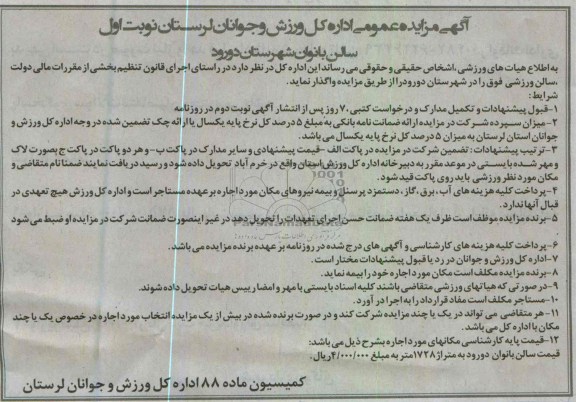 آگهی مزایده عمومی اداره کل ورزش و جوانان لرستان نوبت اول
سالن بانوان شهرستان دورود
به اطلاع هیات های ورزشی، اشخاص حقیقی و حقوقی می رساند این اداره کل در نظر دارد در راستای اجرای قانون تنظیم بخشی از مقررات مالی دولت
،سالن ورزشی فوق را در شهرستان دورود را از طریق مزایده واگذار نماید.
شرایط:
۱-قبول پیشنهادات و تکمیل مدارک و درخواست کتبی ۷۰ روز پس از انتشار آگهی نوبت دوم در روزنامه
۲- میزان سپرده شرکت در مزایده ارائه ضمانت نامه بانکی به مبلغ ۵ درصد کل نرخ پایه یکسال یا ارائه چک تضمین شده در وجه اداره کل ورزش و
جوانان استان لرستان به میزان ۵ درصد کل نرخ پایه یکسال می باشد.
۳-ترتیب پیشنهادات: تضمین شرکت در مزایده در پاکت الف -قیمت پیشنهادی و سایر مدارک در پاکت ب- و هر دو پاکت در پاکت ج بصورت لاک
و مهر شده بایستی در موعد مقرر به دبیرخانه اداره کل ورزش استان واقع در خرم آباد تحویل داده شود و رسید دریافت نمایند ضمنا نام متقاضی و
مکان مورد نظر ورزشی باید روی پاکت قید شود.
۴-پرداخت کلیه هزینه های آب، برق، گاز، دستمزد پرسنلی و بیمه نیروهای مکان مورد اجاره بر عهده مستاجر است و اداره کل ورزش هیچ تعهدی در
قبال آنها ندارد.
۵-برنده مزایده موظف است ظرف یک هفته ضمانت حسن اجرای تعهدات را تحویل دهد در غیر اینصورت ضمانت شرکت در مزایده او ضبط می شود
۶-پرداخت کلیه هزینه های کارشناسی و آگهی های درج شده در روزنامه بر عهده برنده مزایده می باشد.
۷-اداره کل ورزش و جوانان در رد یا قبول پیشنهادات مختار است.
۸-برنده مزایده مکلف است مکان مورد اجاره خود را بیمه نماید.
۹-در صورتی که هیاتهای ورزشی متقاضی باشند کلیه اسناد بایستی با مهر و امضا رییس هیات تحویل داده شوند.
۱۰-مستاجر مکلف است مفاد قرارداد را به اجرا در آورد.
۱۱- هر متقاضی می تواند در یک یا چند مزایده شرکت کند و در صورت برنده شده در بیش از یک مزایده انتخاب مورد اجاره در خصوص یک یا چند
مکان با اداره کل می باشد.
۱۲-قیمت پایه کارشناسی مکانهای مورد اجاره بشرح ذیل می باشد:
قیمت سالن بانوان دورود به متراژ ۱۷۲۸ متر به مبلغ ۴/۰۰۰/۰۰۰ ریال.
کمیسیون ماده ۸۸ اداره کل ورزش و جوانان لرستان